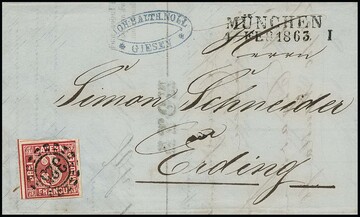 JOH. BALTH. NOLL
GIESEN
MÜNCHEN
4 FEB. 1863. I
Herrn
Simon Schneider
in
Erding
BAYERN
DREI
FRANCO